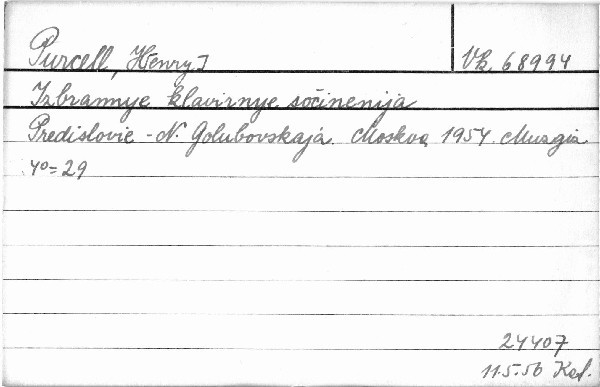 Purcell, Henry] Vk 68994
Izbrannye klavirnye sočinenija
Predislovie - N. Golubovskaja. Moskva 1954. Muzgiz
4°= 29
24407
11.5.56 Kal.